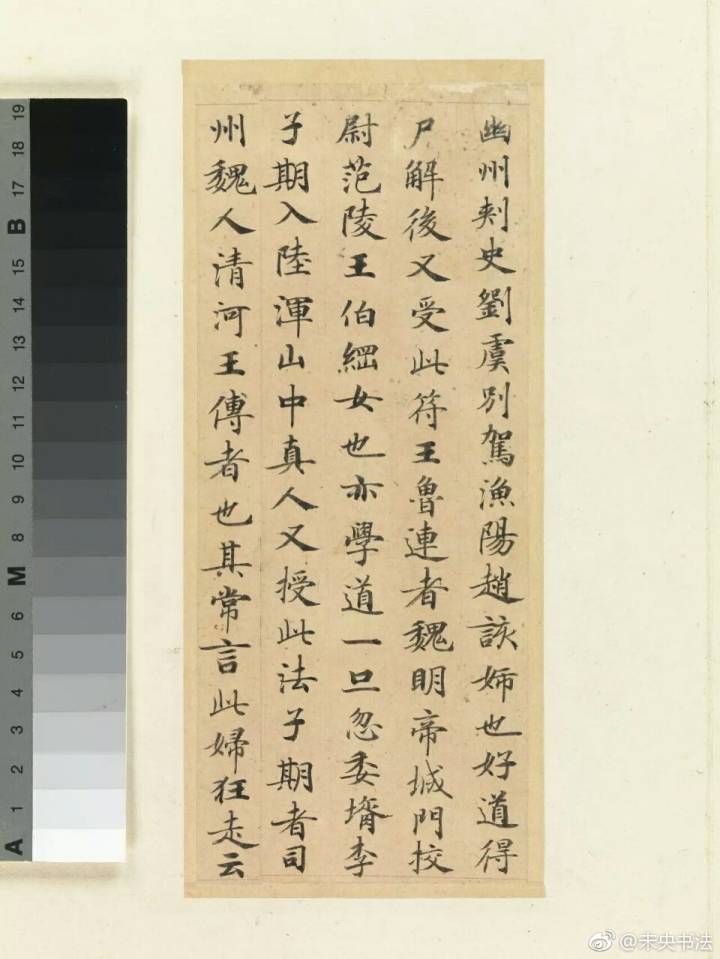 幽州刾史劉虞別駕漁陽趙該姉也好道得
尸解後又受此符王魯連者魏明帝城門挍
尉范陵王伯綱女也亦學道一旦忽委壻李
子期入陸渾山中真人又授此法子期者司
州魏人清河王傅者也其常言此婦狂走云
19
18
17
B
15
14
13
12
11
10
9
8
M
6
5
4
3
2
1
A
@未央书法